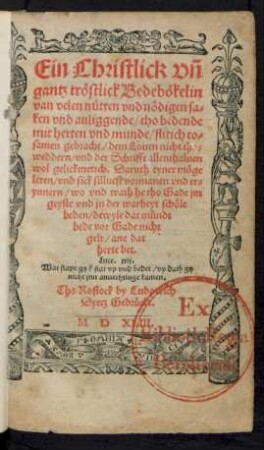 Ein Christlick vñ
gantz tröstlick Bedebökelin
van velen nütten vnd nödigen sa-
ken vnd anliggende / tho bedende
mit herten vnd munde / flitich to-
samen gebracht / dem Louen nicht th.
weddern / vnd der Schrifft allenthaluen
wol gelickmetich. Daruth eyner möge
leren / vnd sick süluest vormanen vnd er-
ynnern / wo vnd wath he tho Gade ym
geyste vnd yn der warheyt schöle
beden / dewyle dat mündt
bede vor Gade nicht
gelt / ane dat
herte bet.
Luce.
Wat slape gy? stat vp vnd bedet / vp dath gy
nicht ynn anuechtinge kamen.
Tho Rostock by Ludowich
Dyetz Gedrückt.
M D
Ex